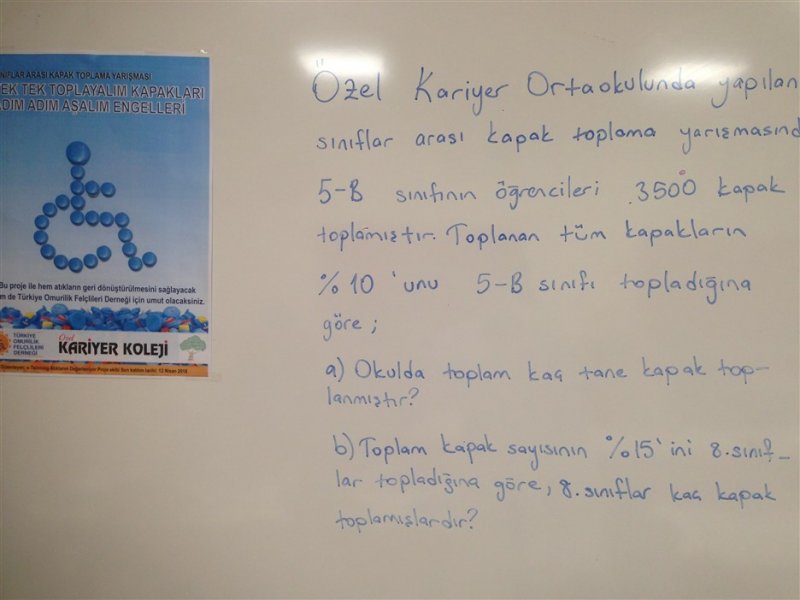 SINIFLAR ARASI KAPAK TOPLAMA YARIŞMASI
TEK TEK TOPLAYALIM KAPAKLARI
ADIM ADIM AŞALIM ENGELLERİ
Bu proje ile hem atıkların geri dönüştürülmesini sağlayacak
de Türkiye Omurilik Felçlileri Derneği için umut olacaksınız.
TÜRKİYE
OMURİLİK
FELÇLİLERİ
DERNEĞİ
Özel
KARİYER KOLEJİ
Özel Kariyer Ortaokulunda yapılan
sınıflar arası kapak toplama yarışmasınd
5-B sınıfının öğrencileri 3500 kapak
toplamıştır. Toplanan tüm kapakların
%10'unu 5-B sınıfı topladığına
göre;
a) Okulda toplam kaç tane kapak top-
lanmıştır?
b) Toplam kapak sayısının %15'ini 8.sınıf-
lar topladığına göre, 8.sınıflar kaç kapak
toplamışlardır?